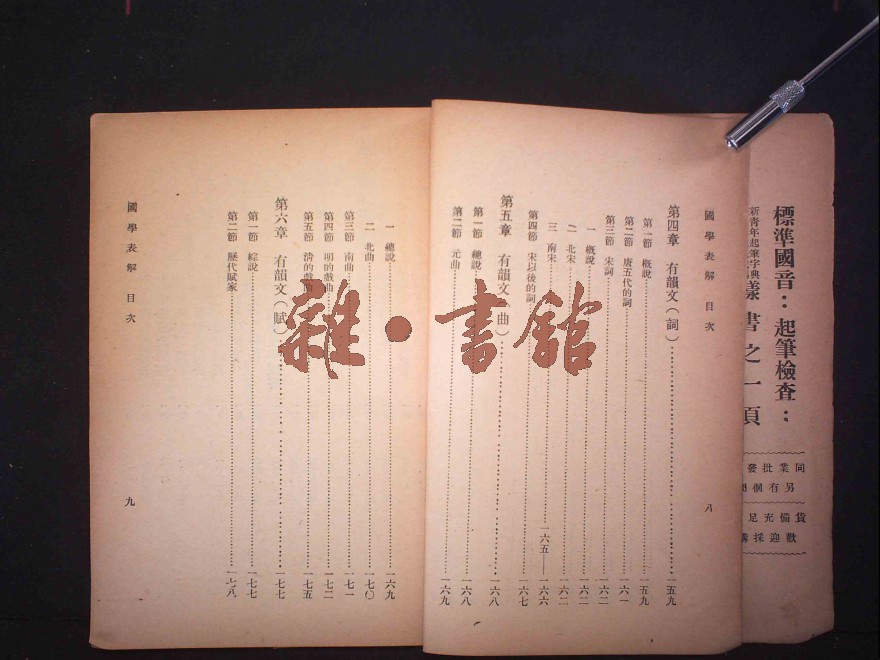 標準國音：起筆檢查：
新青年起筆字典樣書之一頁
同業批發
另有個
貨備充足
歡迎採購
國學表解 目次
八
第四章 有韻文（詞）一五九
第一節 概說一五九
第二節 唐五代的詞一六一
第三節 宋詞一六二
一 概說一六二
二 北宋一六二
三 南宋一六五——一六六
第四節 宋以後的詞一六七
第五章 有韻文（曲）一六八
第一節 總說一六八
第二節 元曲一六九
一 總說一六九
二 北曲一七〇
第三節 南曲一七一
第四節 明的戲曲一七二
第五節 清的戲曲一七五
第六章 有韻文（賦）一七七
第一節 綜說一七七
第二節 歷代賦家一七八
國學表解 目次
九
雜·書館